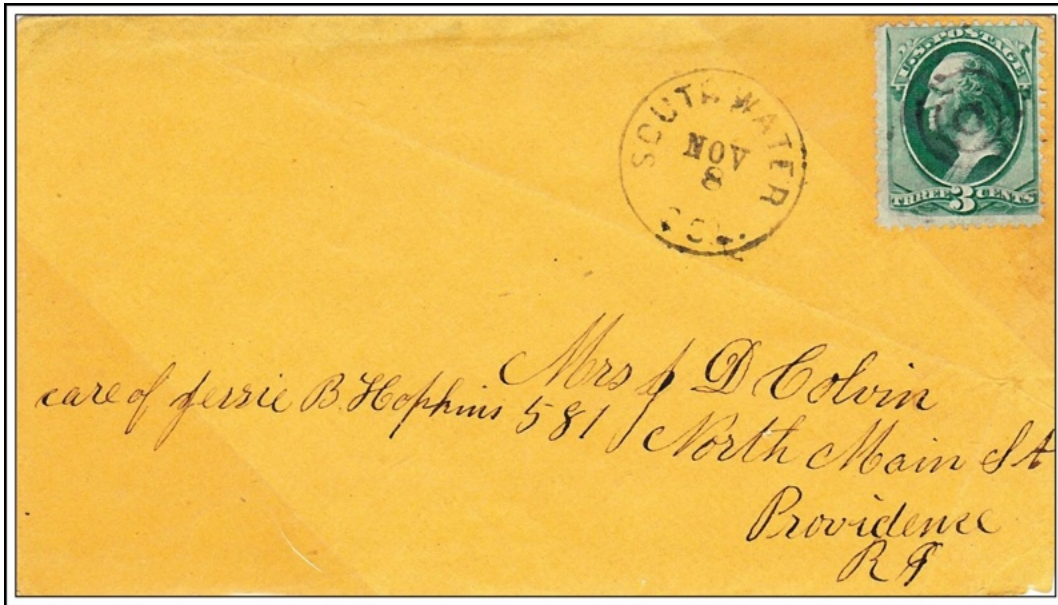 U.S. POSTAGE
THREE 3 CENTS
SOUTH WATER
NOV
8
Mrs J D Colvin
care of Jerrie B. Hopkins 581 North Main St
Providence
R I